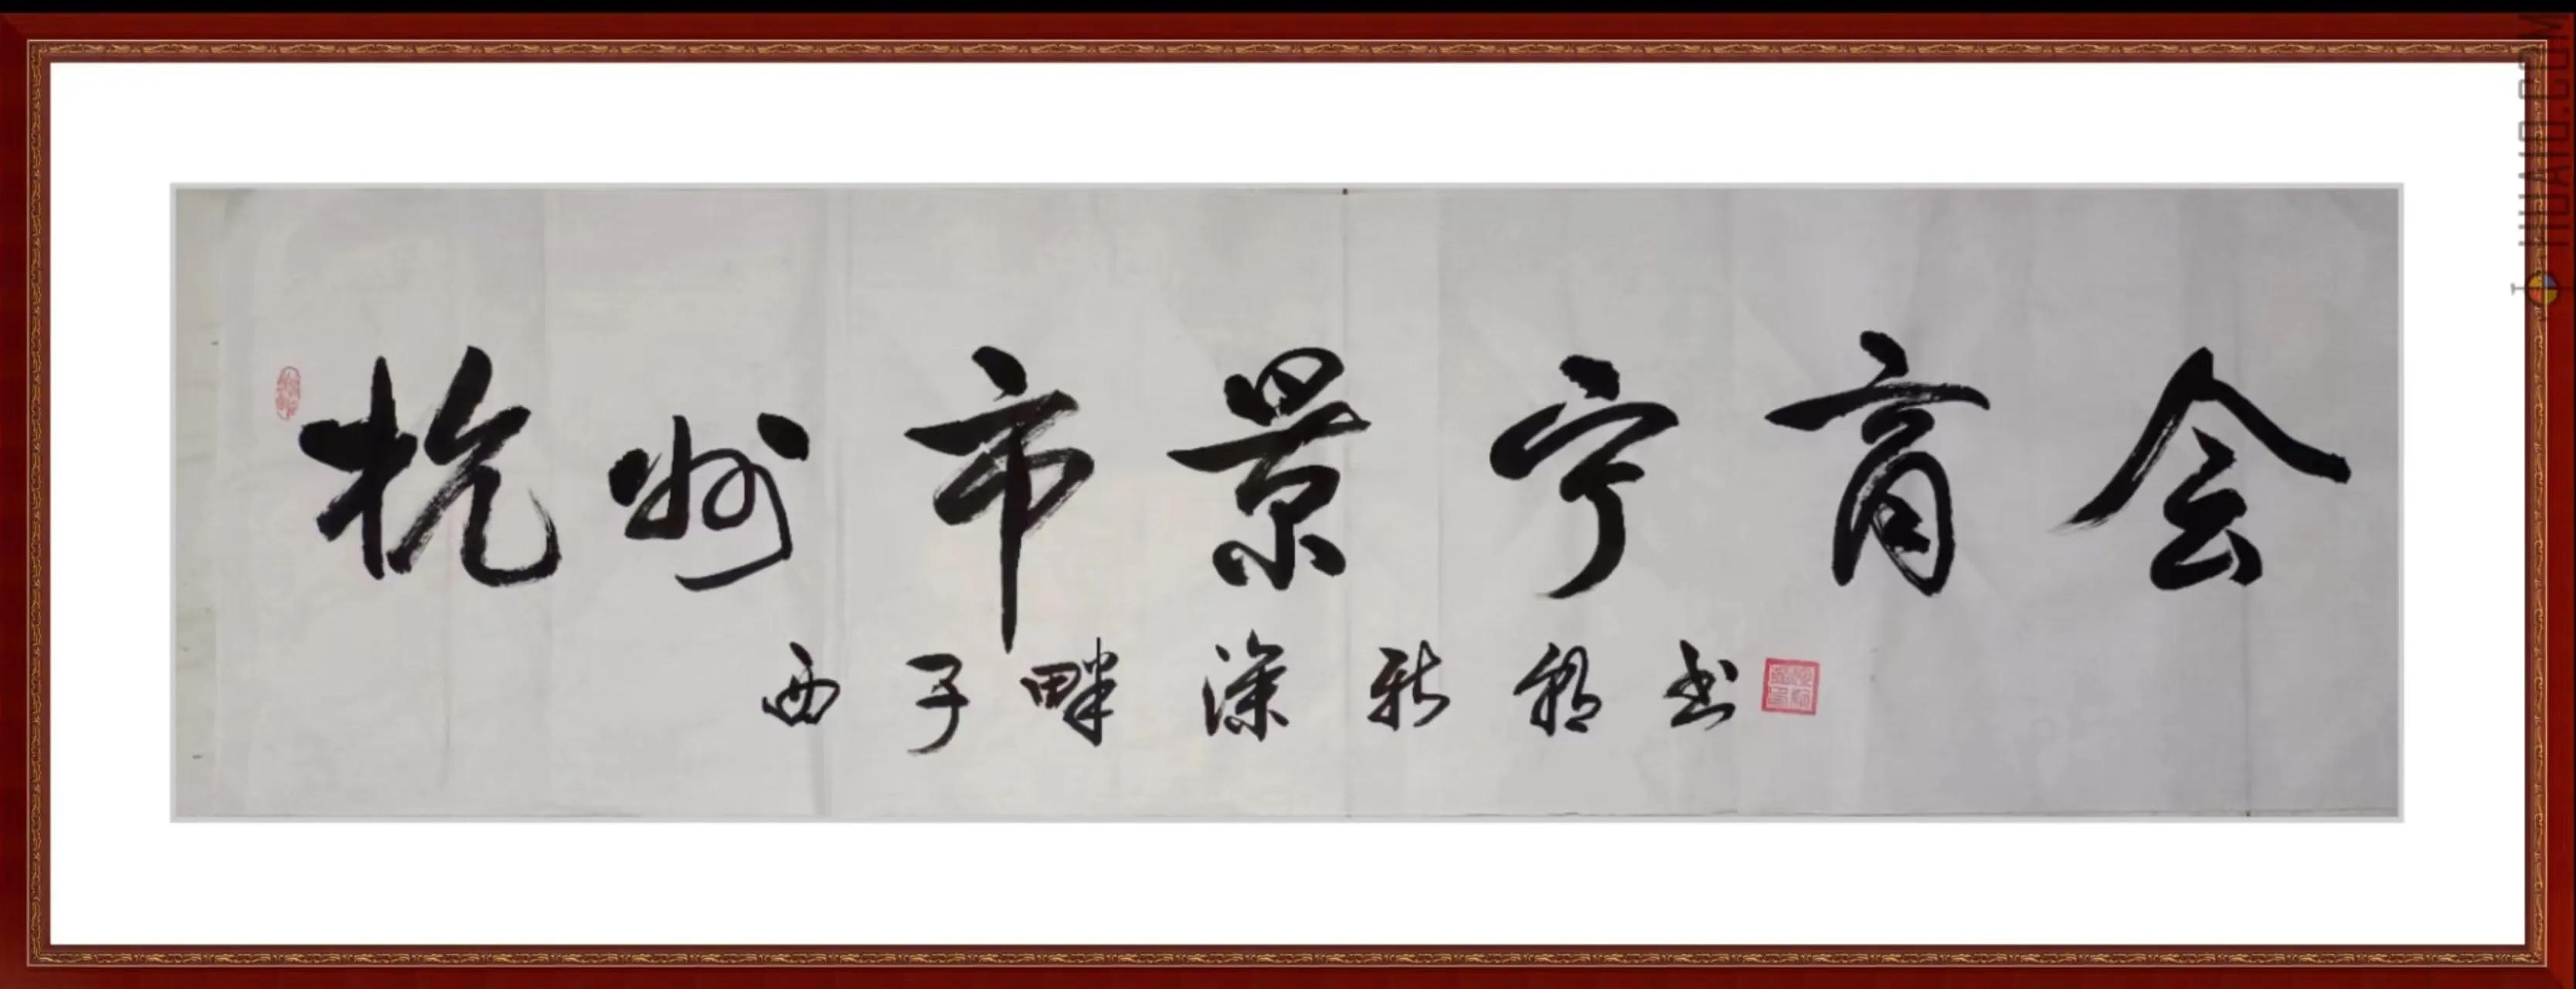 杭州市景宁商会
西子畔新书
HUAID.COM